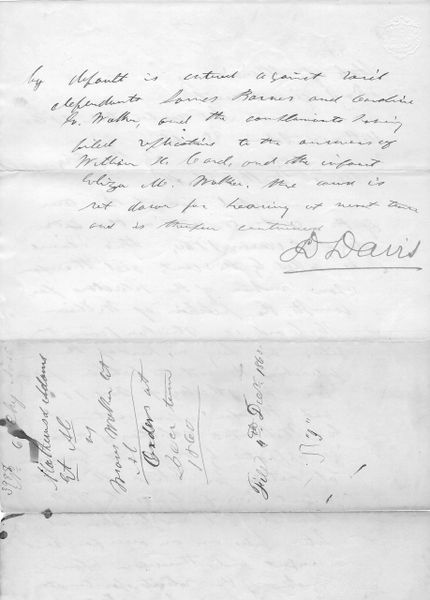 by default is entered against said
defendants James Barnes and Caroline
W. Walker, and the complainants having
filed replications to the answers of
William H. Card, and the infant
Eliza M. Walker. the cause is
set down for hearing at next term
and is therefore continued
D Davis
Adams
Et Al
vs
Walker et
al
Orders at
Decr term
1860
Filed 4th Decr. 186